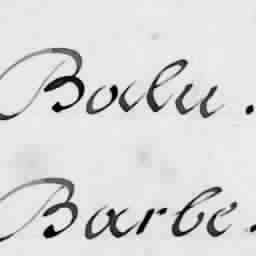 Badu.
Barbe.